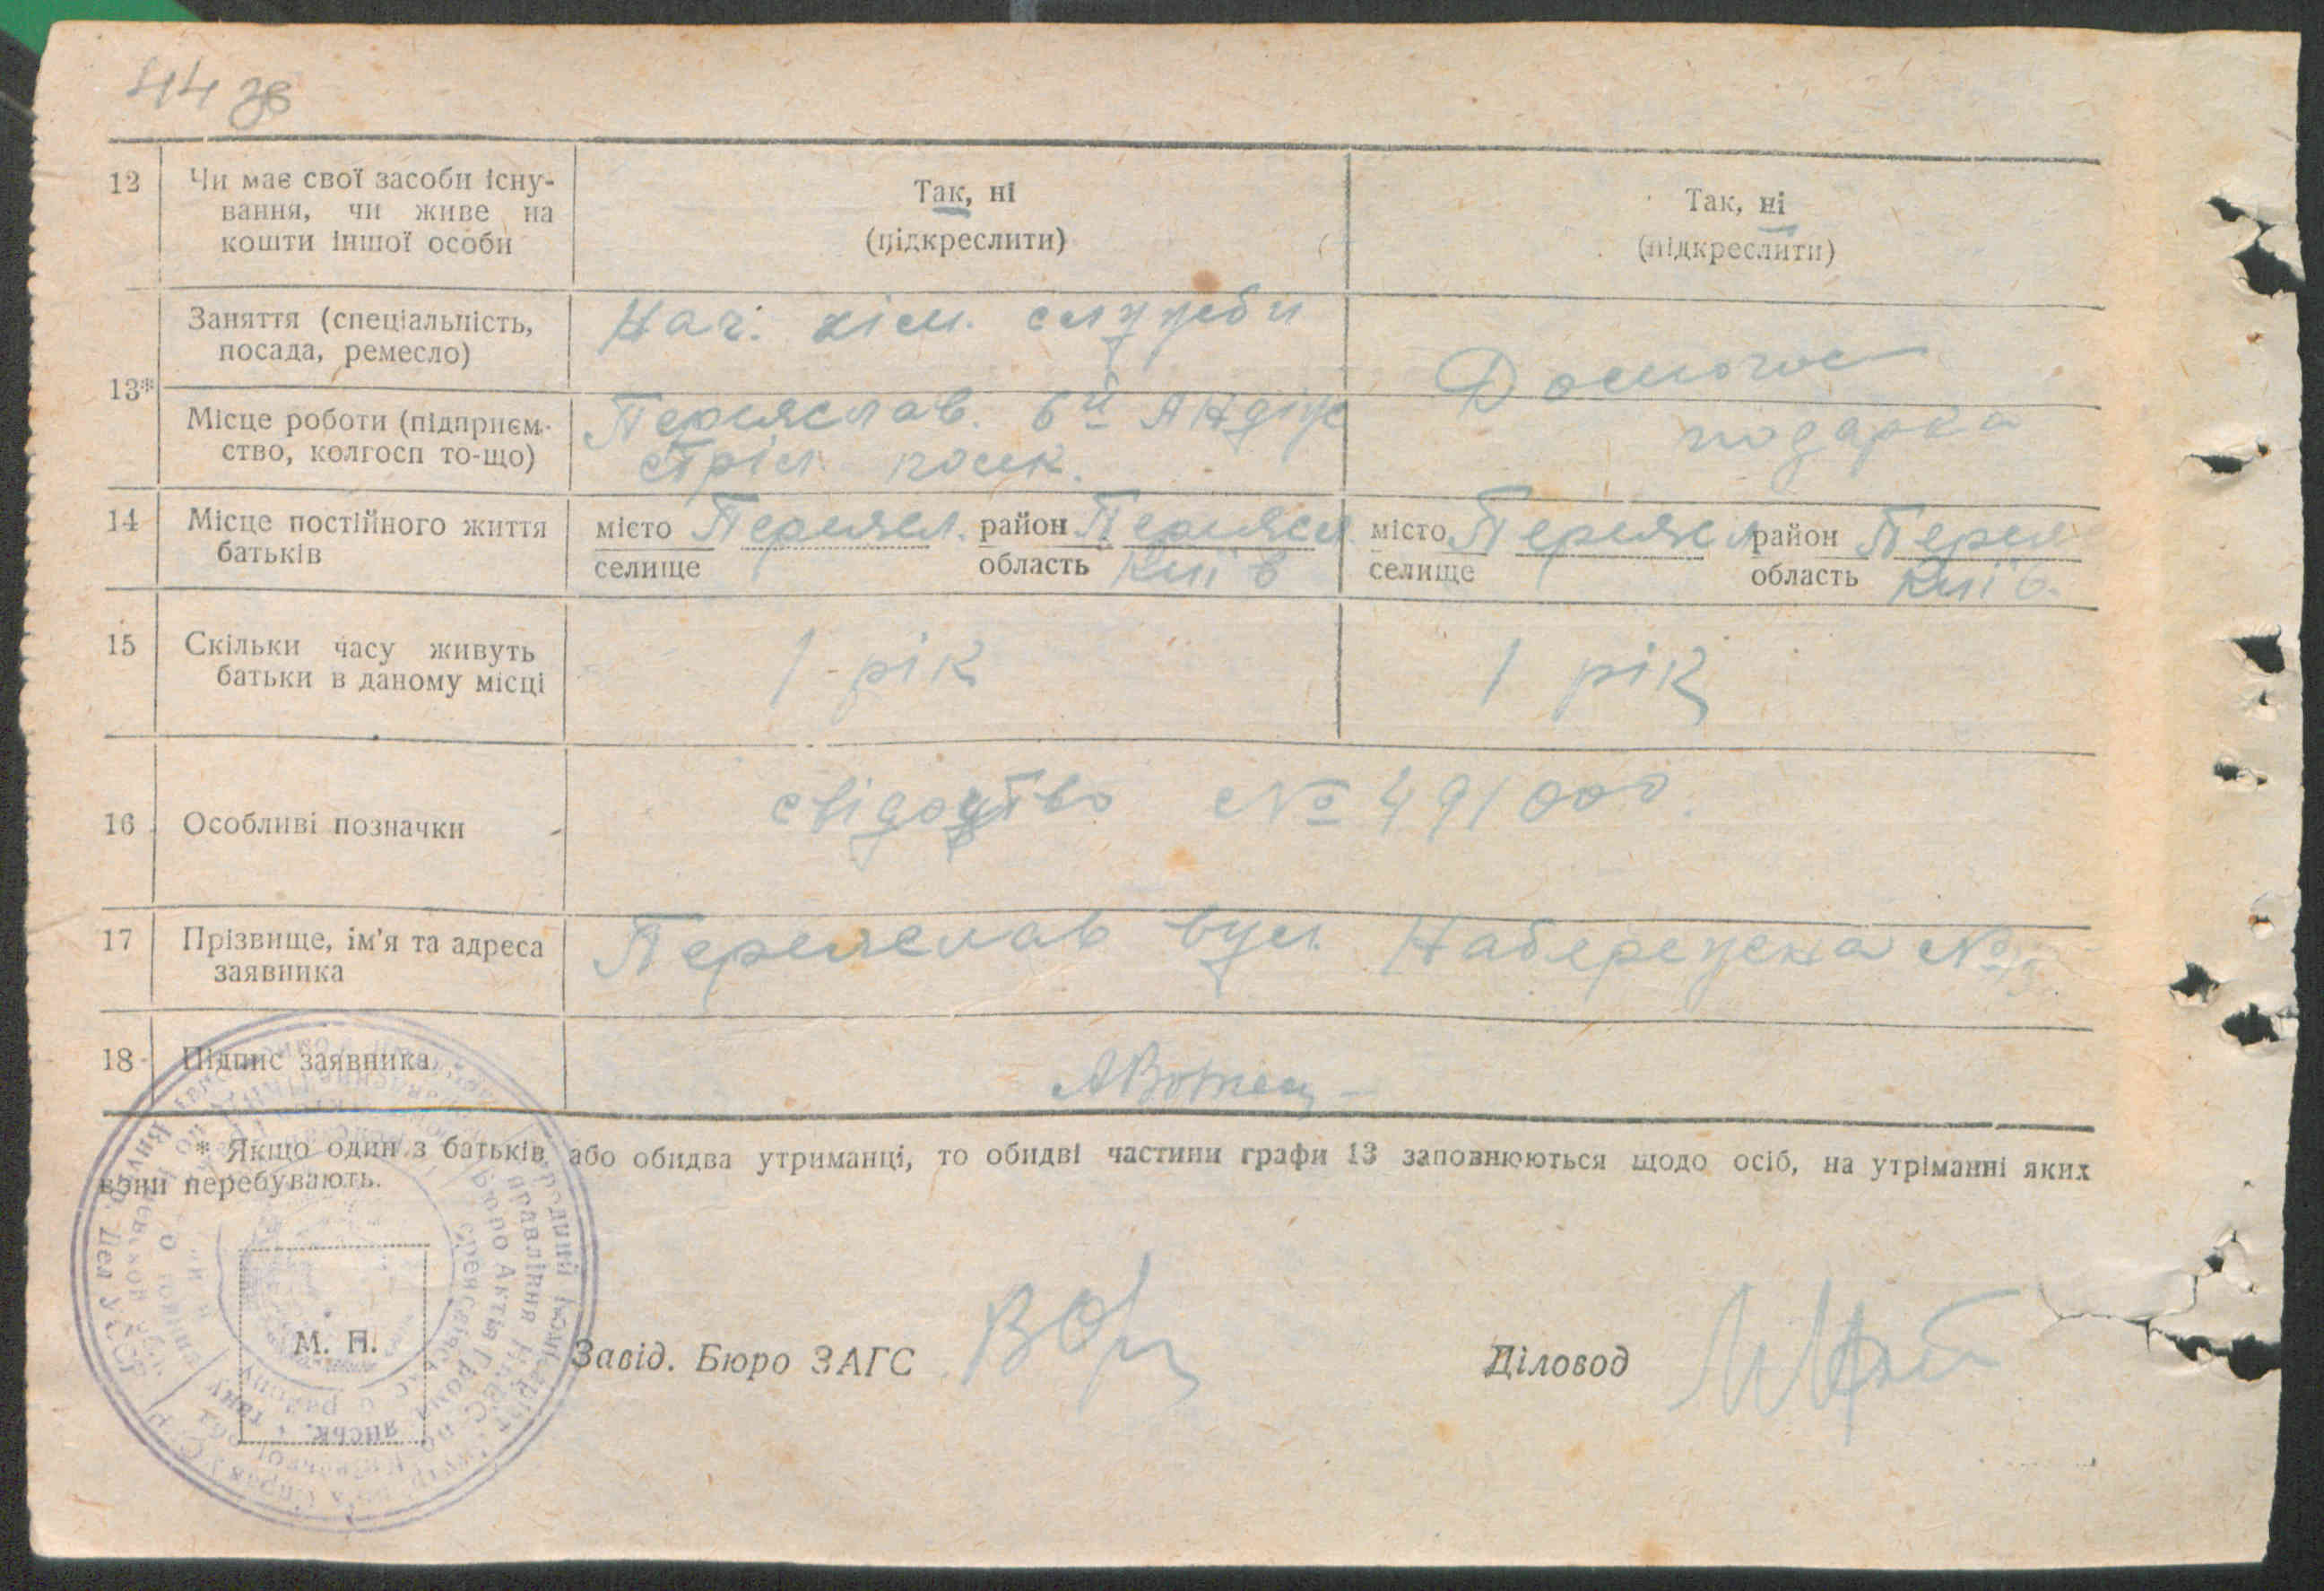 44 зв
12 Чи має свої засоби існу-
вання, чи живе на
кошти іншої особи
Так, ні
(підкреслити)
Так, ні
(підкреслити)
13*
Заняття (спеціальність,
посада, ремесло)
Нач. хім. служби
Домогос
подарка
Місце роботи (підприєм-
ство, колгосп то-що)
Переяслав. 6й
стріл. полк.
14 Місце постійного життя
батьків
місто Переясл. район Переясл
селище область Київ
місто Переясл район Переяс
селище область Київ.
15 Скільки часу живуть
батьки в даному місці
1 рік
1 рік
16 Особливі позначки
свідоцтво № 491000.
17 Прізвище, ім'я та адреса
заявника
Переяслав вул. Набережна №
18 Підпис заявника
* Якщо один з батьків або обидва утриманці, то обидві частини графи 13 заповнюються щодо осіб, на утріманні яких
вони перебувають.
М. П.
Завід. Бюро ЗАГС
Діловод